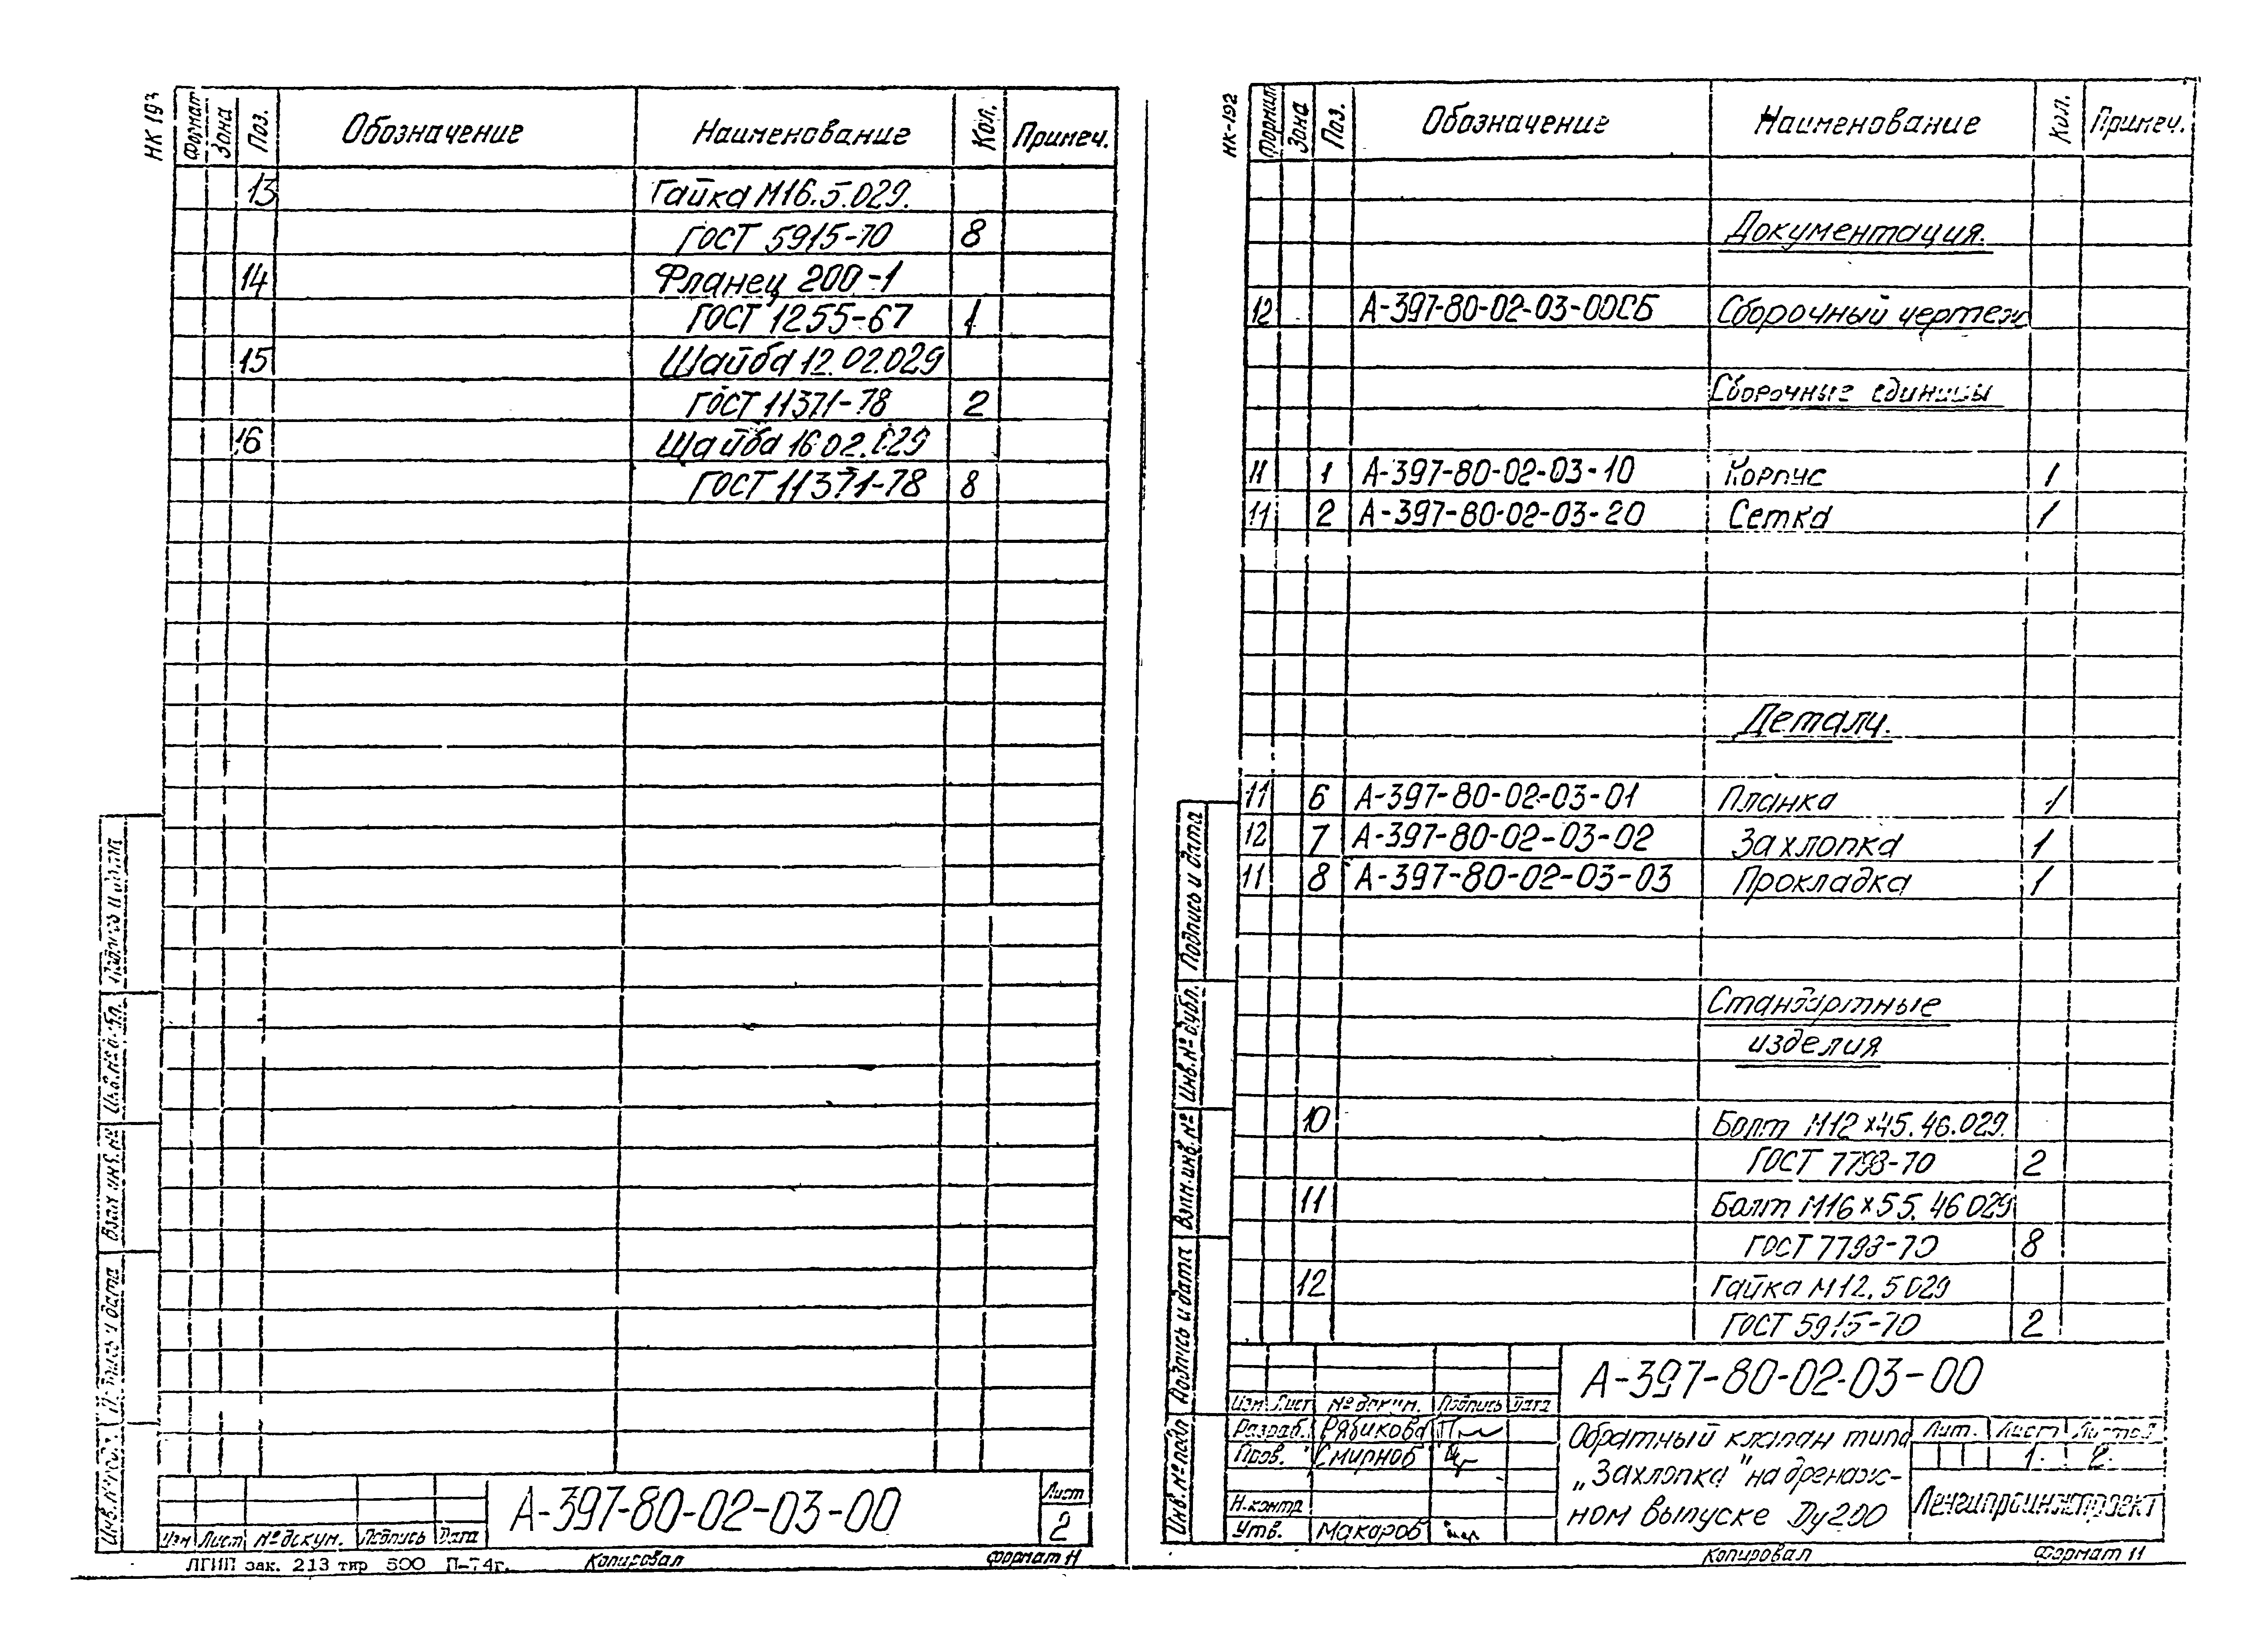 НК 193
Формат Зона Поз. Обозначение Наименование Кол. Примеч.
13 Гайка М16.5.029.
ГОСТ 5915-70 8
14 Фланец 200-1
ГОСТ 1255-67 1
15 Шайба 12.02.029
ГОСТ 11371-78 2
16 Шайба 16 02.029
ГОСТ 11371-78 8
Взам инв. №
Изм Лист № докум. Подпись Дата
А-397-80-02-03-00
Лист
2
ЛГИП зак. 213 тир 500 П-74г.
Копировал
Формат 11
НК-192
Формат Зона Поз. Обозначение Наименование Кол. Примеч.
Документация.
12 А-397-80-02-03-00СБ Сборочный чертеж
Сборочные единицы
11 1 А-397-80-02-03-10 Корпус 1
11 2 А-397-80-02-03-20 Сетка 1
Детали.
11 6 А-397-80-02-03-01 Планка 1
12 7 А-397-80-02-03-02 Захлопка 1
11 8 А-397-80-02-03-03 Прокладка 1
Стандартные
изделия
10 Болт М12×45.46.029.
ГОСТ 7798-70 2
11 Болт М16×55.46 029
ГОСТ 7798-70 8
12 Гайка М12.5 029
ГОСТ 5915-70 2
Подпись и дата
Инв. № дубл.
Взам. инв. №
Подпись и дата
Инв. № подл
А-397-80-02-03-00
Изм Лист № докум. Подпись Дата
Разраб. Рябикова
Пров. Смирнов
Н.контр
Утв. Макаров
Обратный клапан типа
„Захлопка" на дренаж-
ном выпуске Ду200
Лит. Лист Листов
1. 2.
Ленгипроинжпроект
Копировал
Формат 11